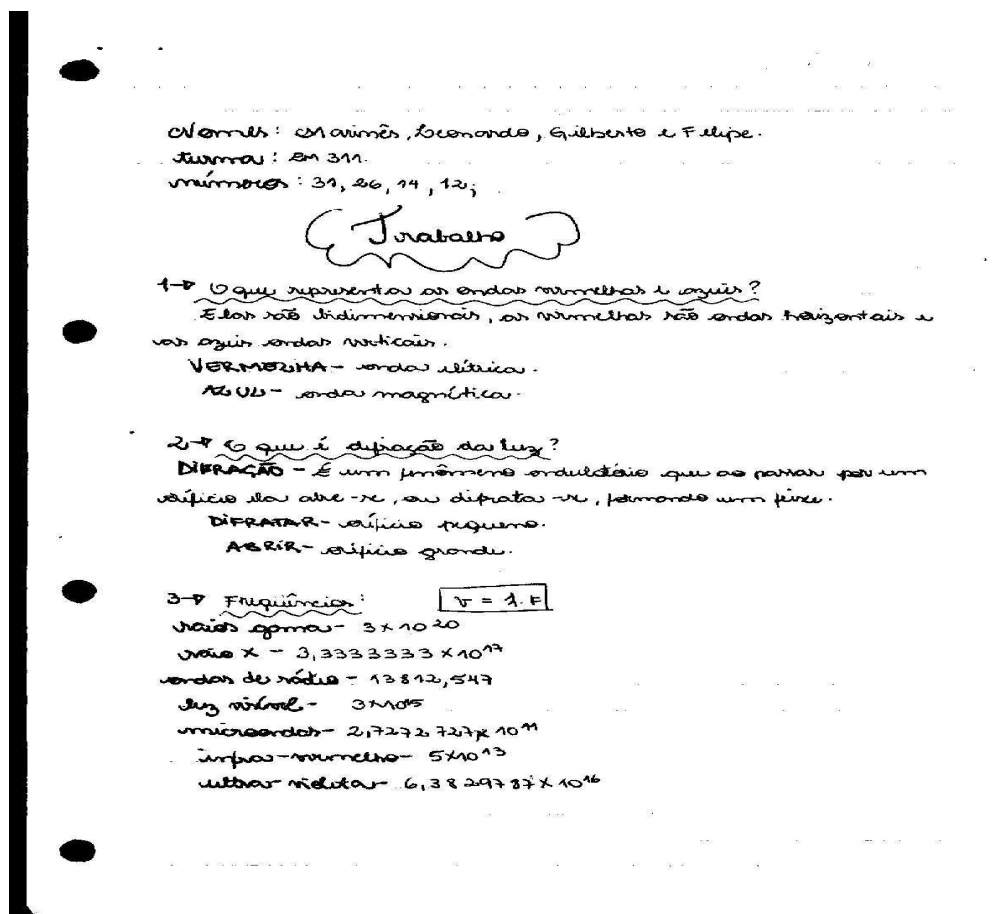 Nomes: Marinês, Leonardo, Gilberto e Felipe.
turma: EM 311.
números: 31, 26, 14, 12;
Trabalho
1→ O que representa as ondas vermelhas e azuis?
Elas são bidimensionais, as vermelhas são ondas horizontais e
as azuis ondas verticais.
VERMELHA - onda elétrica.
AZUL - onda magnética.
2→ O que é difração da luz?
DIFRAÇÃO - É um fenômeno ondulatório que ao passar por um
orifício ela abre-se, ou difrata-se, formando um feixe.
DIFRATAR - orifício pequeno.
ABRIR - orifício grande.
3→ Freqüências: v = λ.F
raios gama - 3×10²⁰
raio X - 3,3333333×10¹⁷
ondas de rádio - 13812,547
luz visível - 3×10¹⁵
microondas - 2,7272727×10¹¹
infra-vermelho - 5×10¹³
ultra-violeta - 6,3829787×10¹⁶